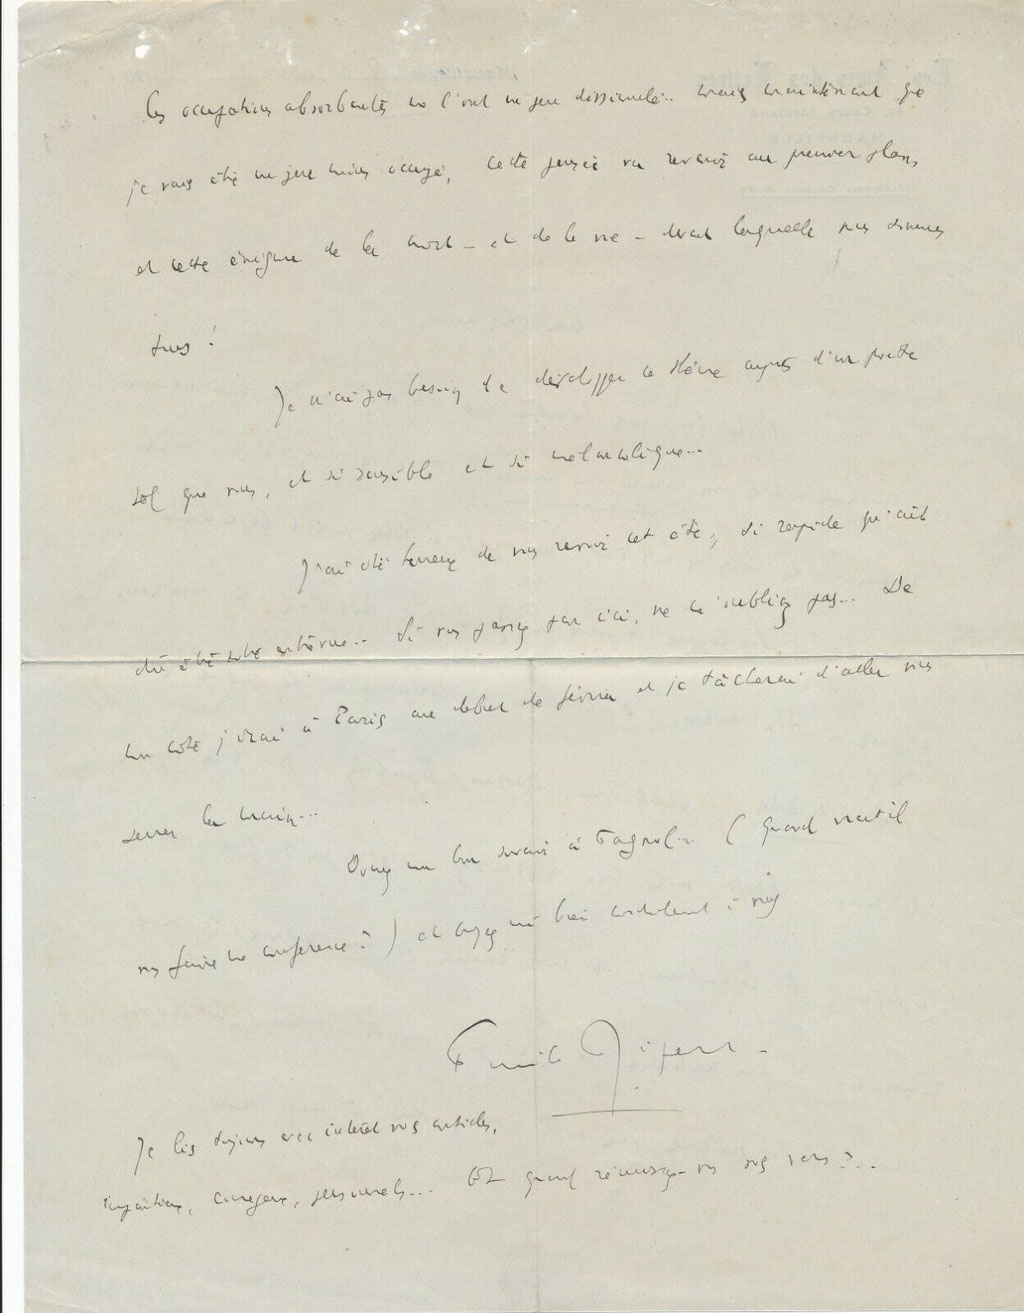 Ces occupations absorbantes me l'ont un peu dissimulé.. mais maintenant que
je vais être un peu moins occupé, cette pensée va revenir au premier plan,
et cette énigme de la mort - et de la vie - devant laquelle nous sommes
tous !
Je n'ai pas besoin de développer ce thème auprès d'un poète
tel que vous, et si sensible et si mélancolique...
J'ai été heureux de vous revoir cet été, si rapide qu'ait
dû être notre entrevue... Si vous passez par ici, ne m'oubliez pas... De
mon côté j'irai à Paris au début de février et je tâcherai d'aller vous
serrer la main...
Donnez mon bon souvenir à Pagnol... (Quand vient-il
nous faire une conférence ?) et croyez moi bien cordialement à vous
Emile Ripert
Je lis toujours avec intérêt vos articles,
courageux, personnels... Et quand réunissez-vous vos vers ?...
Les Amis des Lettres
Marseille, le 193
MARSEILLE